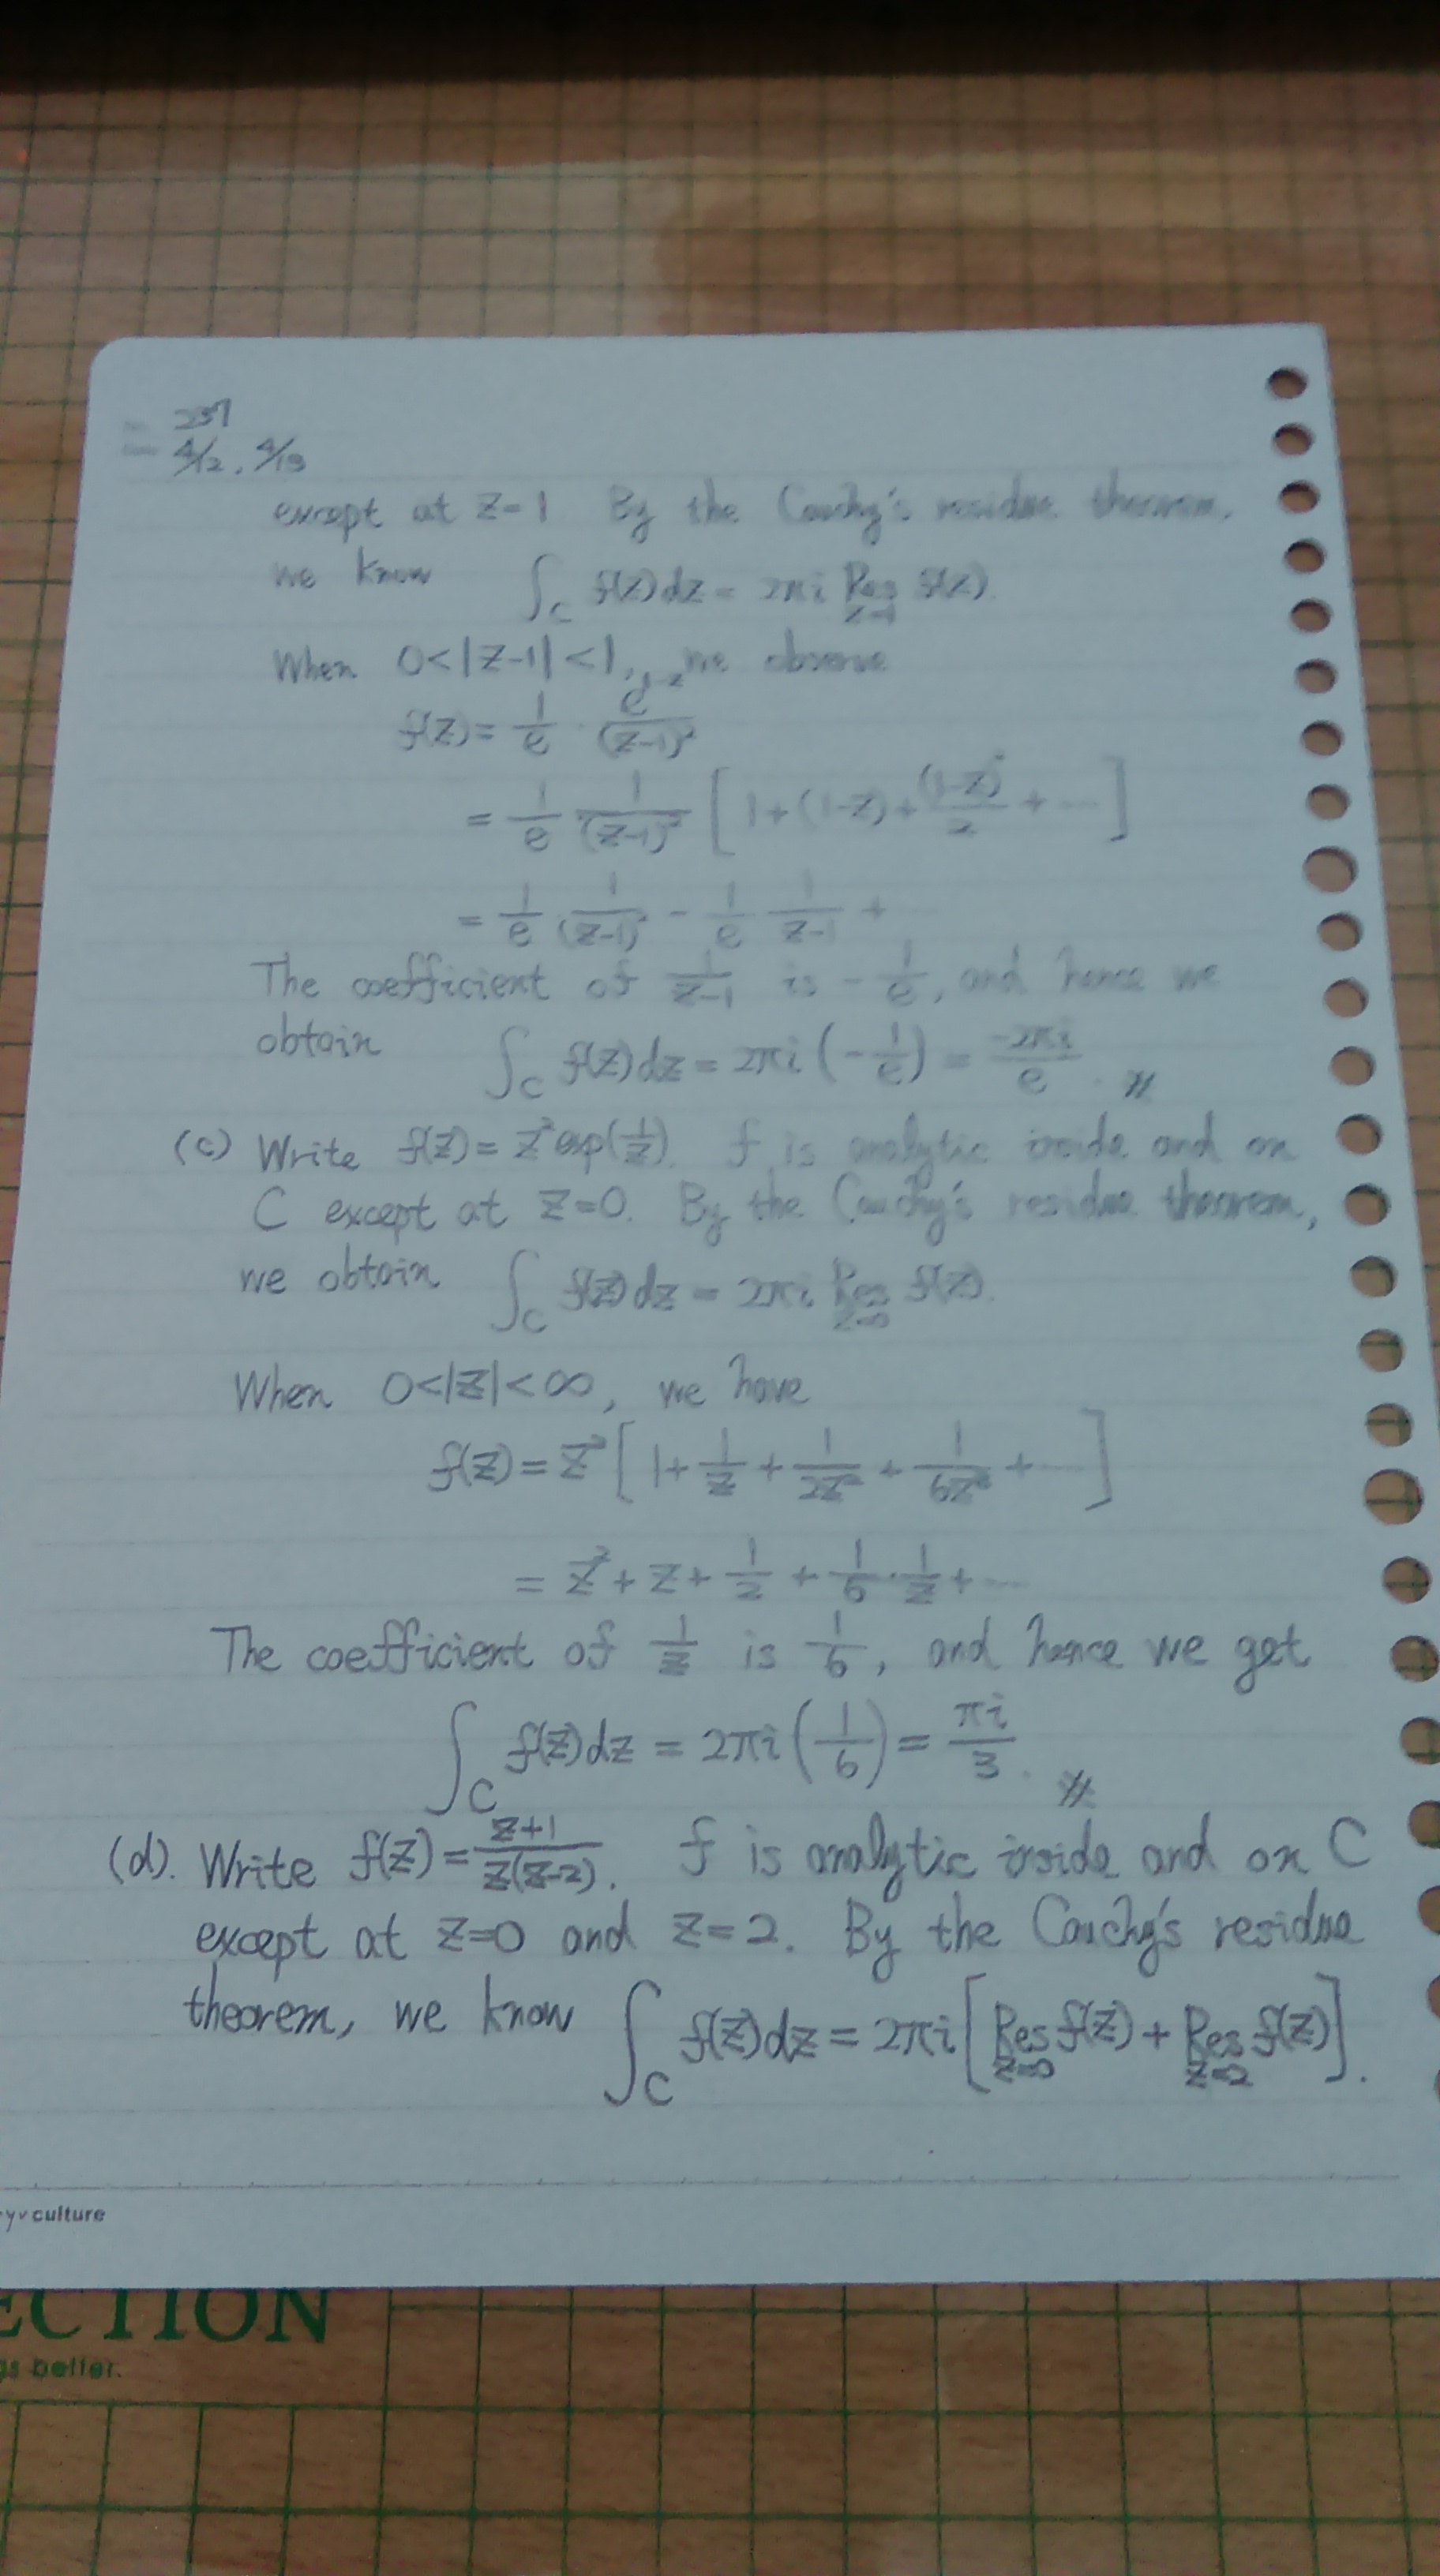 237
4/12, 4/13
except at z=1 By the Cauchy's residue theorem,
we know ∫_C f(z)dz = 2πi Res_{z=1} f(z).
When 0<|z-1|<1, we observe
f(z) = 1/e · e^{1-z}/(z-1)²
= 1/e 1/(z-1)² [1+(1-z)+(1-z)²/2+⋯]
= 1/e · 1/(z-1)² - 1/e 1/(z-1) + ⋯
The coefficient of 1/(z-1) is -1/e, and hence we
obtain ∫_C f(z)dz = 2πi(-1/e) = -2πi/e.
(c) Write f(z) = z² exp(1/z). f is analytic inside and on
C except at z=0. By the Cauchy's residue theorem,
we obtain ∫_C f(z)dz = 2πi Res_{z=0} f(z).
When 0<|z|<∞, we have
f(z) = z² [1+1/z+1/(2z²)+1/(6z³)+⋯]
= z²+z+1/2+1/6·1/z+⋯
The coefficient of 1/z is 1/6, and hence we get
∫_C f(z)dz = 2πi(1/6) = πi/3.
(d). Write f(z) = (z+1)/(z(z-2)). f is analytic inside and on C
except at z=0 and z=2. By the Cauchy's residue
theorem, we know ∫_C f(z)dz = 2πi[Res_{z=0} f(z) + Res_{z=2} f(z)].
culture
ECTION
gs better.